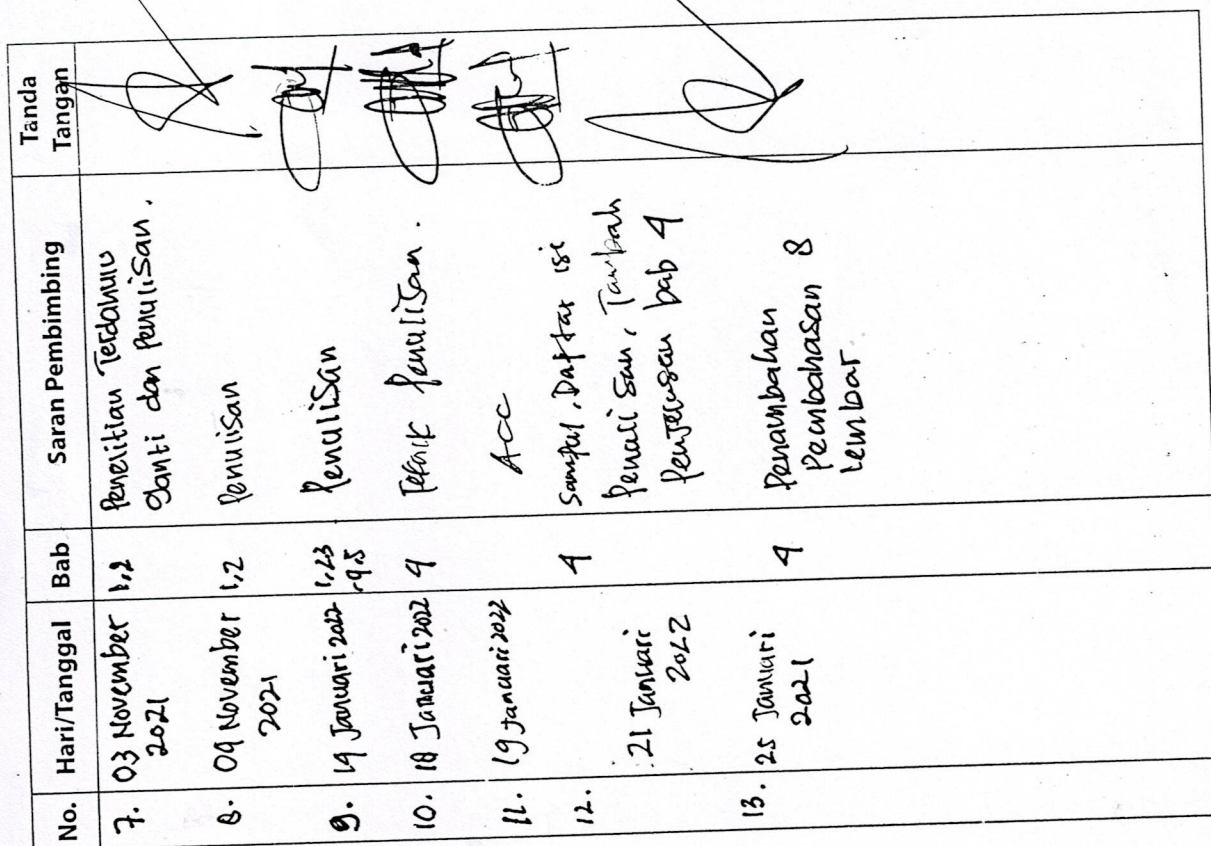 No. Hari/Tanggal Bab Saran Pembimbing Tanda Tangan
7. 03 November 2021 1,2 Penelitian Terdahulu
Ganti dan Penulisan.
8. 09 November 2021 1,2 Penulisan
9. 14 Januari 2022 1,23 Penulisan
10. 18 Januari 2022 4 Teknik Penulisan.
11. 19 Januari 2022 Acc
12. 21 Januari 2022 4 Sampul, Daftar isi
Penulisan, Tambah
Penjelasan bab 4
13. 25 Januari 2021 4 Penambahan
Pembahasan 8
lembar.